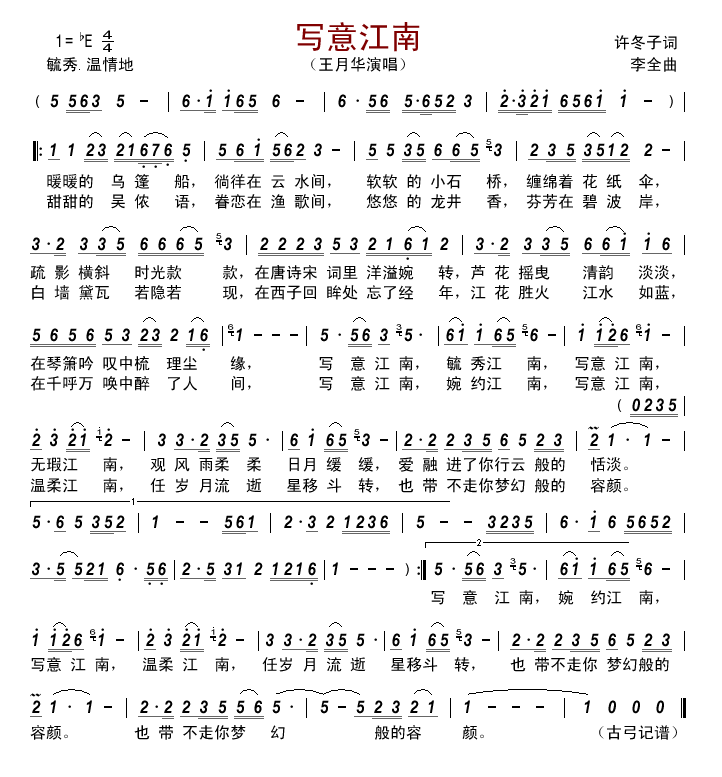 写意江南
1= ♭E 4/4 许冬子词
毓秀.温情地 （王月华演唱） 李全曲
( 5 563 5 - | 6·1 165 6 - | 6·56 5·652 3 | 2·321 6561 1 - ) |
‖: 1 1 23 21676 5 | 5 61 562 3 - | 5 5 35 6 65 5 3 | 2 35 3512 2 - |
暖暖的 乌 篷 船， 徜徉在 云 水间， 软软 的 小石 桥， 缠绵着 花 纸 伞，
甜甜的 吴 侬 语， 眷恋在 渔 歌间， 悠悠 的 龙井 香， 芬芳在 碧 波 岸，
3·2 335 6665 5 3 | 2223 53 2161 2 | 3·2 335 661 16 |
疏 影 横斜 时光款 款，在唐诗宋 词里 洋溢婉 转，芦 花 摇曳 清韵 淡淡，
白 墙 黛瓦 若隐若 现，在西子回 眸处 忘了经 年，江 花 胜火 江水 如蓝，
5656 53 23 2 16 | 6 1 - - - | 5·56 3 3 5· | 61 1 65 5 6 - | 1 126 6 1 - |
在琴箫吟 叹中梳 理尘 缘， 写 意 江 南， 毓 秀江 南， 写意 江 南，
在千呼万 唤中醉 了人 间， 写 意 江 南， 婉 约江 南， 写意 江 南，
( 0235 |
2 3 21 1 2 - | 3 3·2 35 5· | 6 1 65 5 3 - | 2·2 235 65 23 | 2 1· 1 - |
无瑕江 南， 观 风 雨柔 柔 日月 缓 缓， 爱 融 进了你行云 般的 恬淡。
温柔江 南， 任 岁 月流 逝 星移 斗 转， 也 带 不走你梦幻 般的 容颜。
1
5·6 5 352 | 1 - - 561 | 2·3 2 1236 | 5 - - 3235 | 6·1 6 5652 |
2
3·5521 6·56 | 2·5 31 2 1216 | 1 - - - ) :‖ 5·56 3 3 5· | 61 1 65 5 6 - |
写 意 江 南， 婉 约江 南，
1 126 6 1 - | 2 3 21 1 2 - | 3 3·2 35 5· | 6 1 65 5 3 - | 2·2 235 65 23 |
写意 江 南， 温柔 江 南， 任岁 月 流 逝 星移斗 转， 也 带不走你 梦幻般的
2 1· 1 - | 2·2 235 56 5· | 5 - 523 21 | 1 - - - | 1 0 0 0 ‖
容颜。 也 带 不走你梦 幻 般的容 颜。 （古弓记谱）